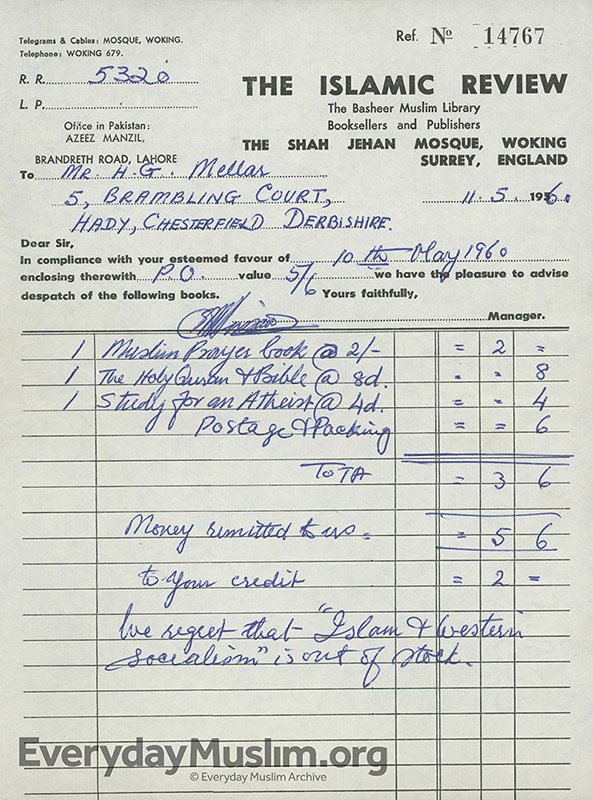 Telegrams & Cables: MOSQUE, WOKING.
Telephone: WOKING 679.
Ref. Nº 14767
R. R. 5320
L. P.
THE ISLAMIC REVIEW
The Basheer Muslim Library
Booksellers and Publishers
Office in Pakistan:
AZEEZ MANZIL,
BRANDRETH ROAD, LAHORE
THE SHAH JEHAN MOSQUE, WOKING
SURREY, ENGLAND
To Mr. H.G. Mellar
5, BRAMBLING COURT, 11.5.1960
HADY, CHESTERFIELD DERBISHIRE.
Dear Sir,
In compliance with your esteemed favour of 10th May 1960
enclosing therewith P.O. value 5/6 we have the pleasure to advise
despatch of the following books. Yours faithfully,
Manager.
1 Muslim Prayer book @ 2/- = 2 =
1 The Holy Quran & Bible @ 8d. - - 8
1 Study for an Atheist @ 4d. = - 4
Postage & Packing = = 6
TOTA - 3 6
Money remitted to us = = 5 6
to your credit = 2 =
We regret that "Islam & Western
socialism" is out of stock.
EverydayMuslim.org
© Everyday Muslim Archive